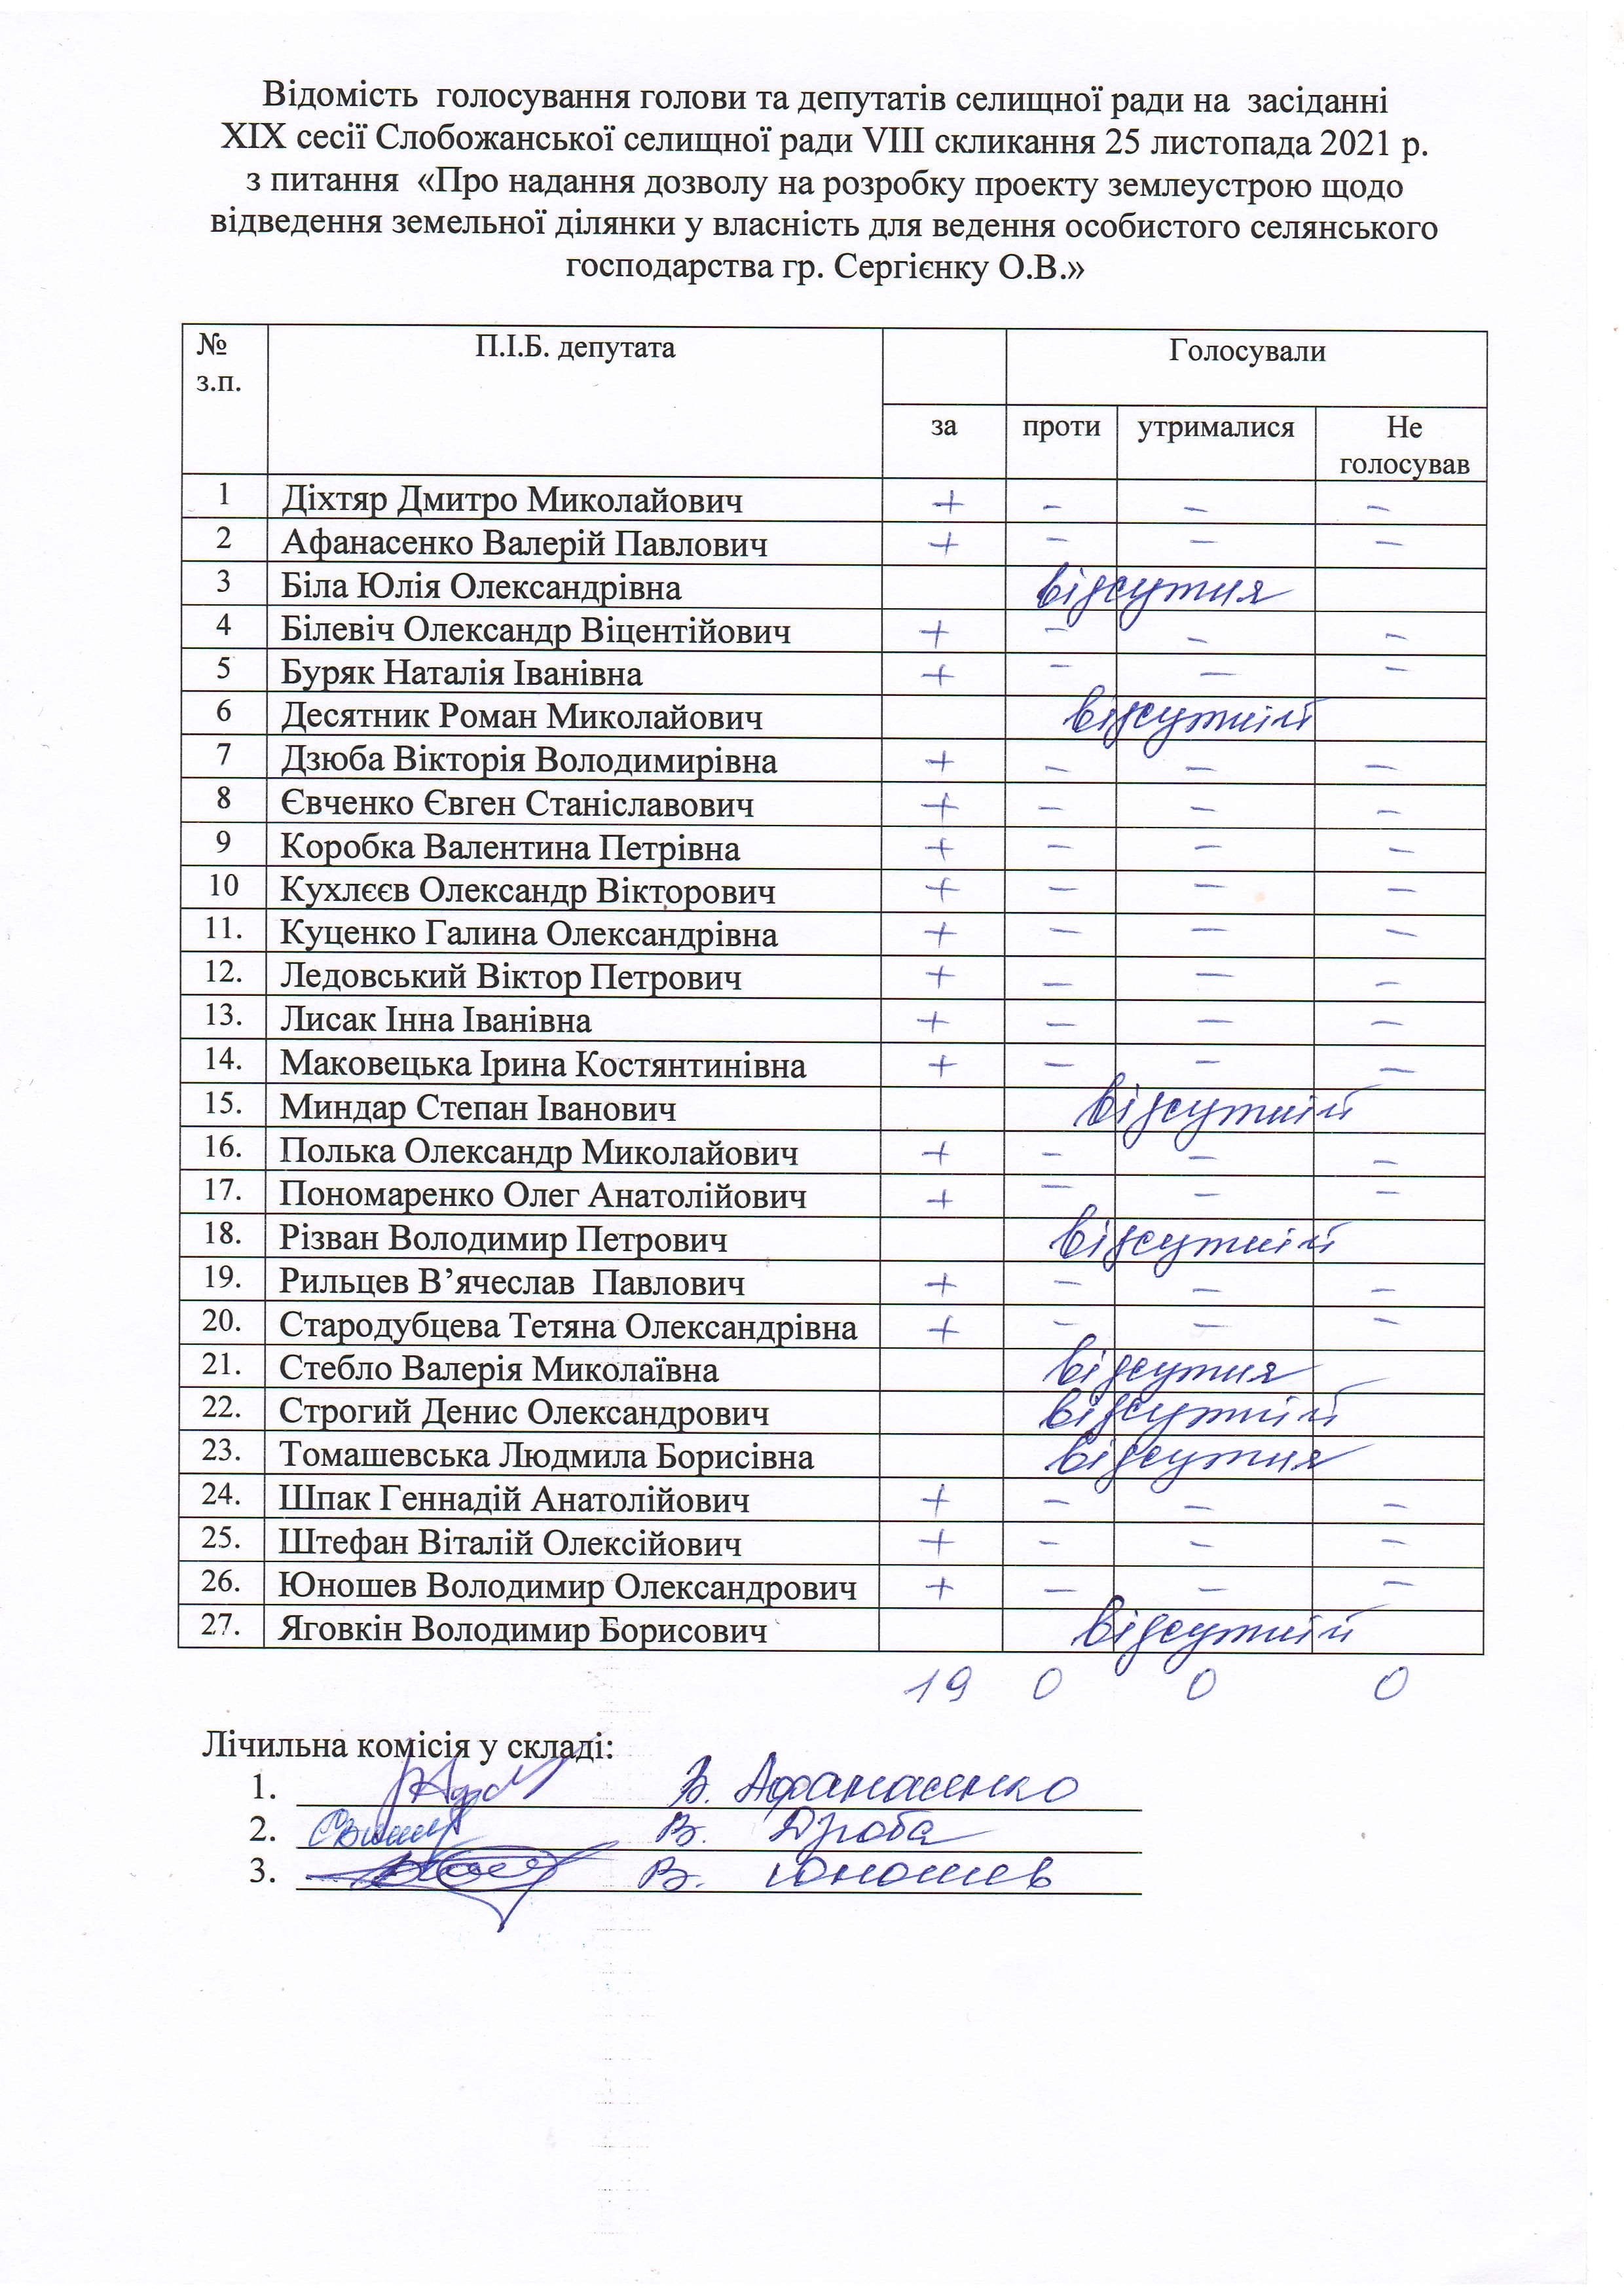 Відомість голосування голови та депутатів селищної ради на засіданні
XIX сесії Слобожанської селищної ради VIII скликання 25 листопада 2021 р.
з питання «Про надання дозволу на розробку проекту землеустрою щодо
відведення земельної ділянки у власність для ведення особистого селянського
господарства гр. Сергієнку О.В.»
№ з.п. П.І.Б. депутата Голосували
за проти утрималися Не голосував
1 Діхтяр Дмитро Миколайович + – – –
2 Афанасенко Валерій Павлович + – – –
3 Біла Юлія Олександрівна відсутня
4 Білевіч Олександр Віцентійович + – – –
5 Буряк Наталія Іванівна + – – –
6 Десятник Роман Миколайович відсутній
7 Дзюба Вікторія Володимирівна + – – –
8 Євченко Євген Станіславович + – – –
9 Коробка Валентина Петрівна + – – –
10 Кухлєєв Олександр Вікторович + – – –
11. Куценко Галина Олександрівна + – – –
12. Ледовський Віктор Петрович + – – –
13. Лисак Інна Іванівна + – – –
14. Маковецька Ірина Костянтинівна + – – –
15. Миндар Степан Іванович відсутній
16. Полька Олександр Миколайович + – – –
17. Пономаренко Олег Анатолійович + – – –
18. Різван Володимир Петрович відсутній
19. Рильцев В’ячеслав Павлович + – – –
20. Стародубцева Тетяна Олександрівна + – – –
21. Стебло Валерія Миколаївна відсутня
22. Строгий Денис Олександрович відсутній
23. Томашевська Людмила Борисівна відсутня
24. Шпак Геннадій Анатолійович + – – –
25. Штефан Віталій Олексійович + – – –
26. Юношев Володимир Олександрович + – – –
27. Яговкін Володимир Борисович відсутній
19 0 0 0
Лічильна комісія у складі:
1. В. Афанасенко
2. В.
3. В. Юношев